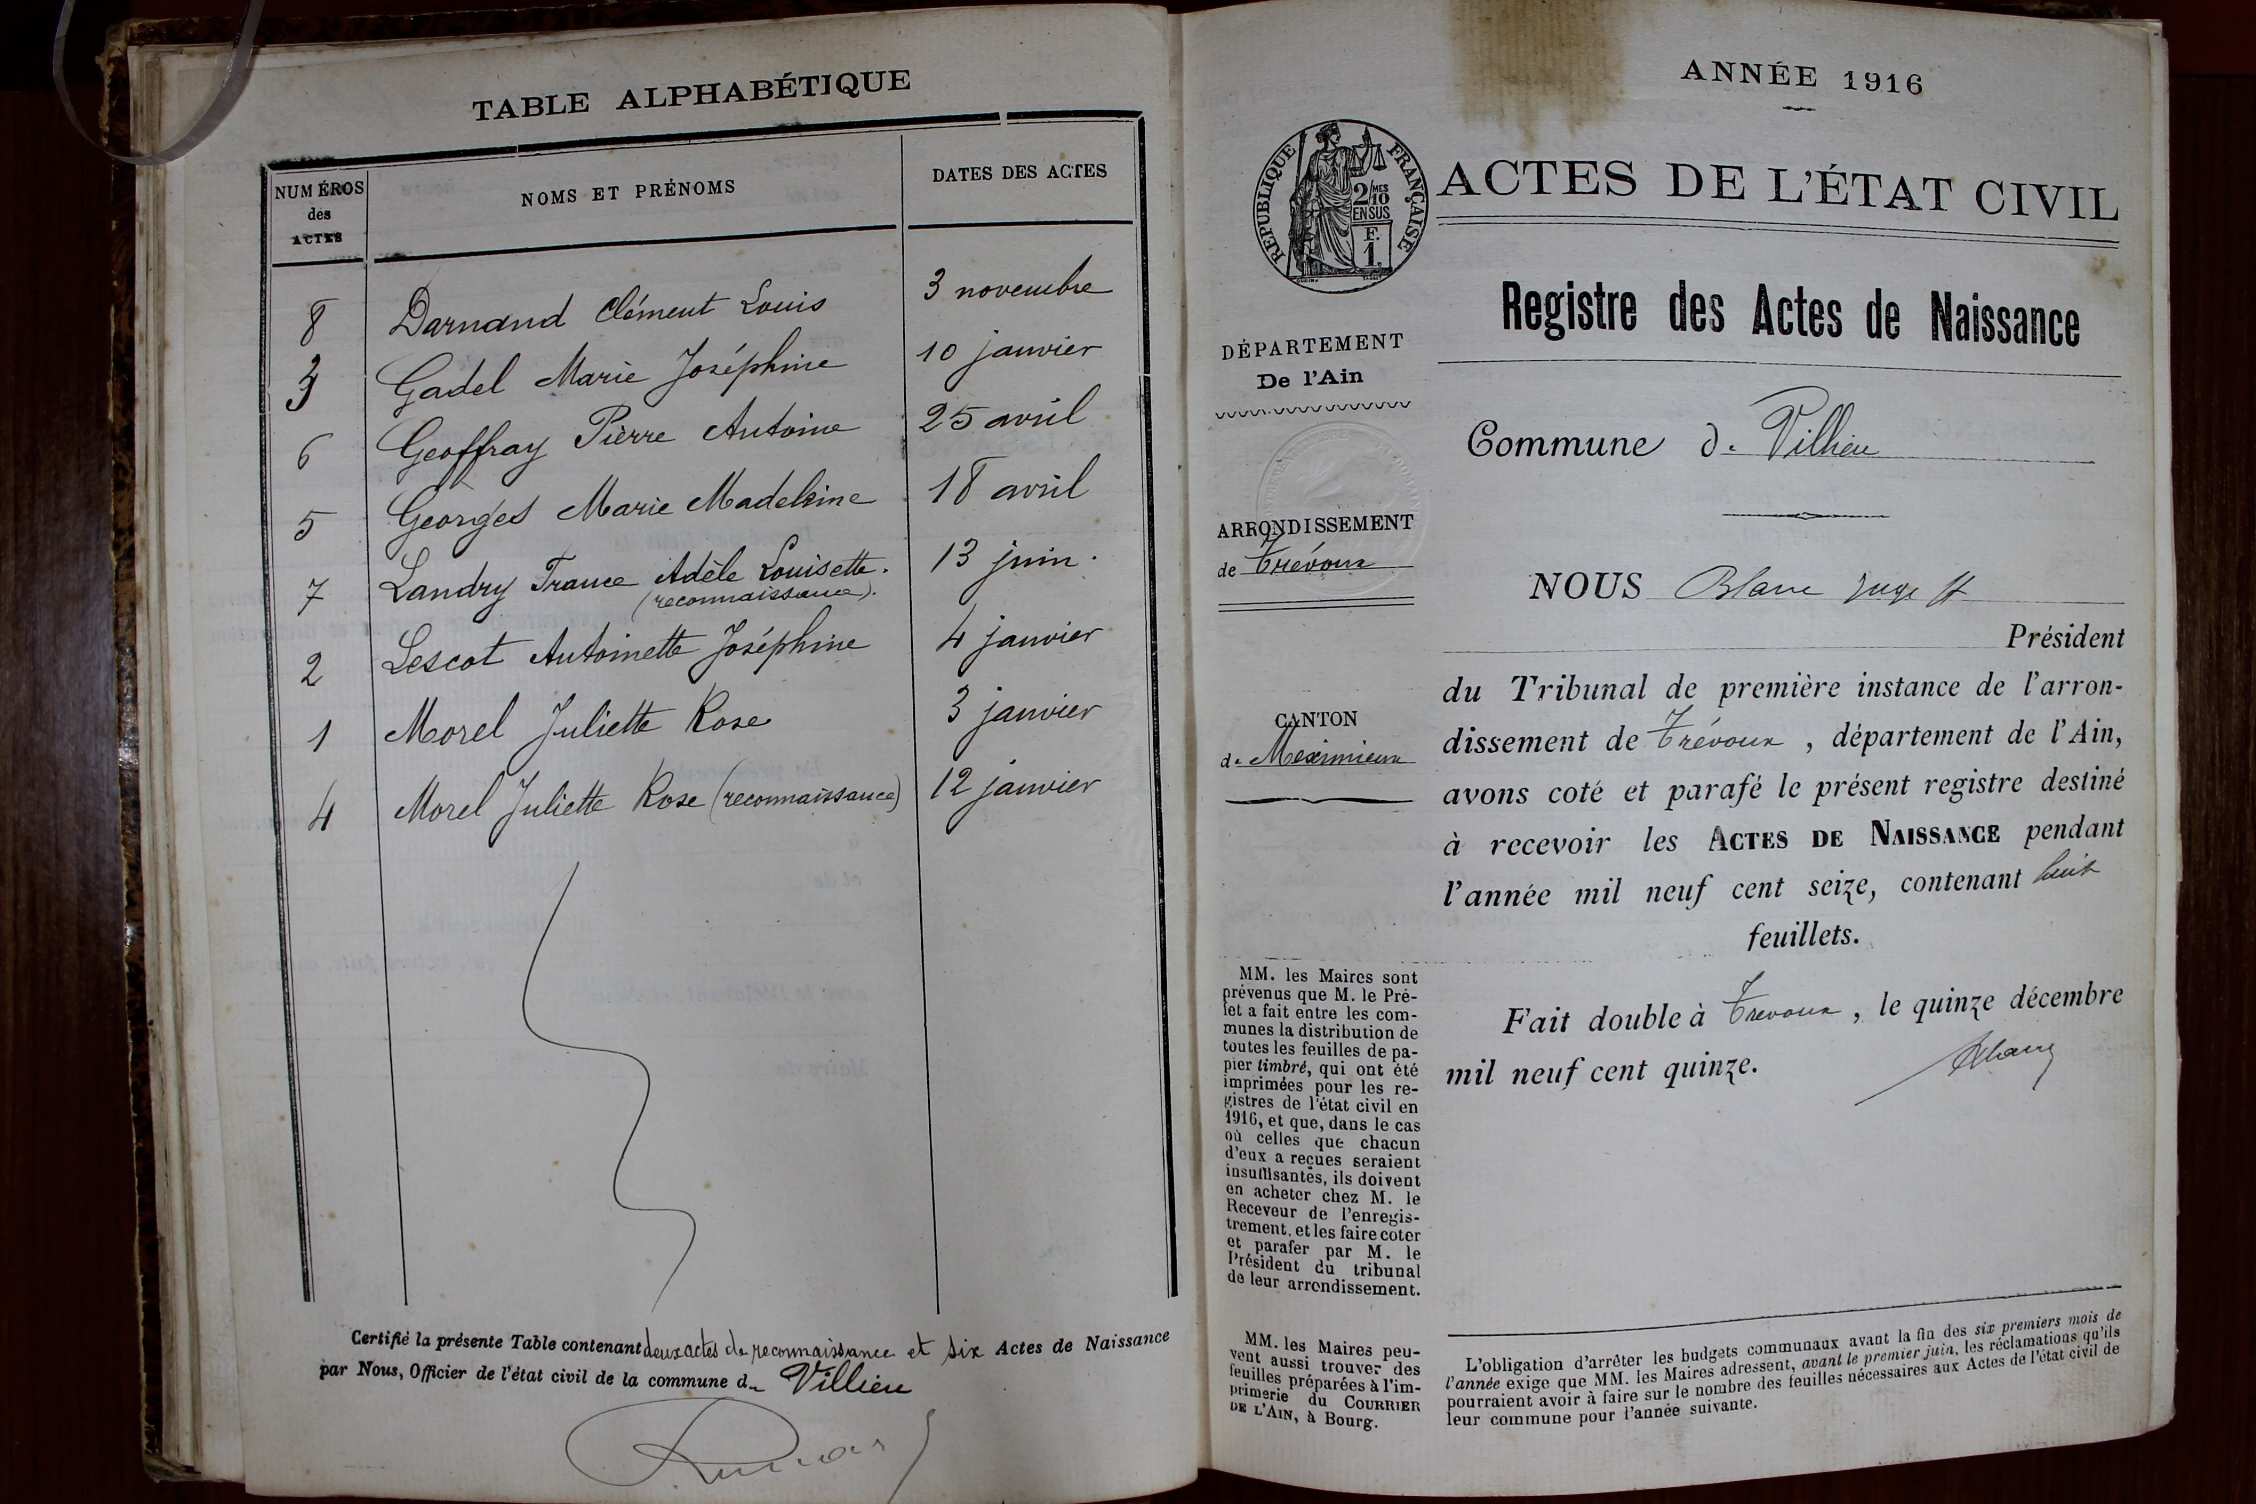 TABLE ALPHABÉTIQUE
NUMÉROS
des
ACTES
NOMS ET PRÉNOMS
DATES DES ACTES
8 Darnand Clément Louis 3 novembre
3 Gadel Marie Joséphine 10 janvier
6 Geoffray Pierre Antoine 25 avril
5 Georges Marie Madeleine 18 avril
7 Landry France Adèle Louisette. 13 juin.
(reconnaissance).
2 Lescot Antoinette Joséphine 4 janvier
1 Morel Juliette Rose 3 janvier
4 Morel Juliette Rose (reconnaissance) 12 janvier
Certifié la présente Table contenant deux actes de reconnaissance et six Actes de Naissance
par Nous, Officier de l'état civil de la commune de Villieu
ANNÉE 1916
RÉPUBLIQUE FRANÇAISE
2/10 MES
EN SUS
F.
1.
ACTES DE L'ÉTAT CIVIL
Registre des Actes de Naissance
DÉPARTEMENT
De l'Ain
Commune de Villieu
ARRONDISSEMENT
de Trévoux
CANTON
de Meximieux
NOUS Blanc Juge
Président
du Tribunal de première instance de l'arron-
dissement de Trévoux, département de l'Ain,
avons coté et parafé le présent registre destiné
à recevoir les ACTES DE NAISSANCE pendant
l'année mil neuf cent seize, contenant huit
feuillets.
Fait double à Trévoux, le quinze décembre
mil neuf cent quinze.
Blanc
MM. les Maires sont
prévenus que M. le Pré-
fet a fait entre les com-
munes la distribution de
toutes les feuilles de pa-
pier timbré, qui ont été
imprimées pour les re-
gistres de l'état civil en
1916, et que, dans le cas
où celles que chacun
d'eux a reçues seraient
insuffisantes, ils doivent
en acheter chez M. le
Receveur de l'enregis-
trement, et les faire coter
et parafer par M. le
Président du tribunal
de leur arrondissement.
MM. les Maires peu-
vent aussi trouver des
feuilles préparées à l'im-
primerie du COURRIER
DE L'AIN, à Bourg.
L'obligation d'arrêter les budgets communaux avant la fin des six premiers mois de
l'année exige que MM. les Maires adressent, avant le premier juin, les réclamations qu'ils
pourraient avoir à faire sur le nombre des feuilles nécessaires aux Actes de l'état civil de
leur commune pour l'année suivante.